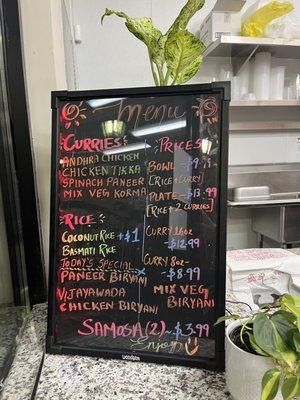 Menu
Curries
Andhra Chicken
Chicken Tikka
Spinach Paneer
Mix Veg Korma
Prices
Bowl - $9.99
[Rice + Curry
Plate - $13.99
[Rice + 2 Curries]
Rice
Coconut Rice + $1
Basmati Rice
Today's Special
Paneer Biryani
Vijayawada
Chicken Biryani
Curry 16oz
- $12.99
Curry 8oz-
- $8.99
Mix Veg
Biryani
Samosa (2) - $3.99
Enjoy